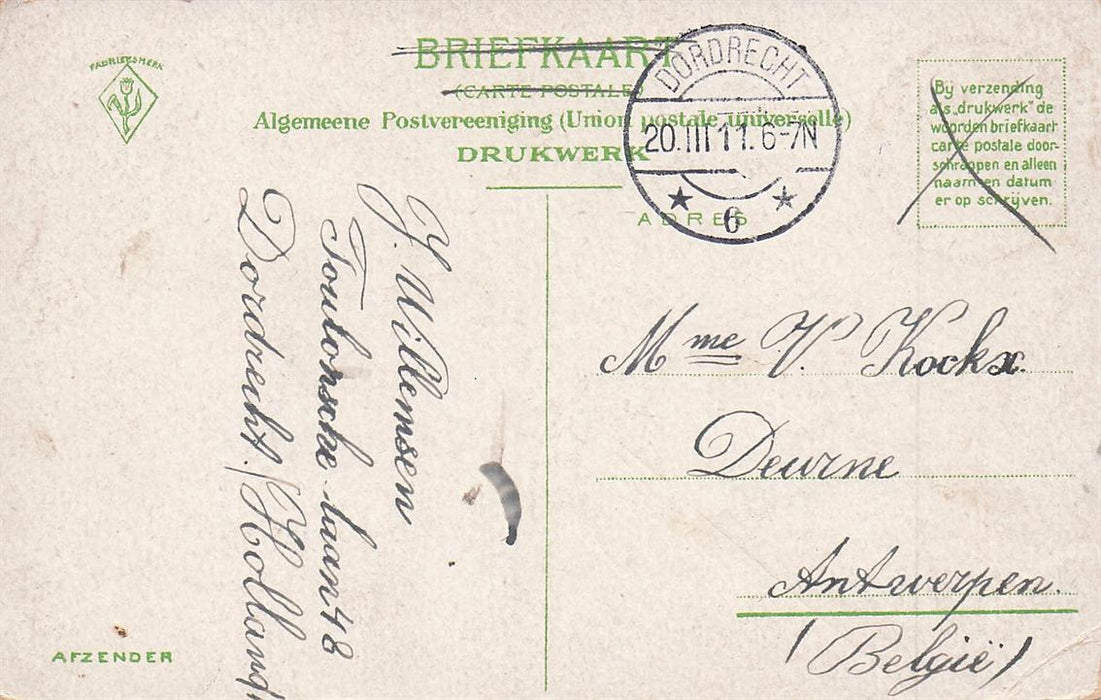 FABRIEKSMERK
BRIEFKAART
(CARTE POSTALE)
Algemeene Postvereeniging (Union postale universelle)
DRUKWERK
DORDRECHT
20.III 11. 6-7N
6
By verzending
als „drukwerk" de
woorden briefkaart
carte postale door-
schrappen en alleen
naam en datum
er op schrijven.
ADRES
J. Willemsen
Toulonsche laan 48
Dordrecht. (Holland)
Mme V. Kockx.
Deurne
Antwerpen.
(België)
AFZENDER